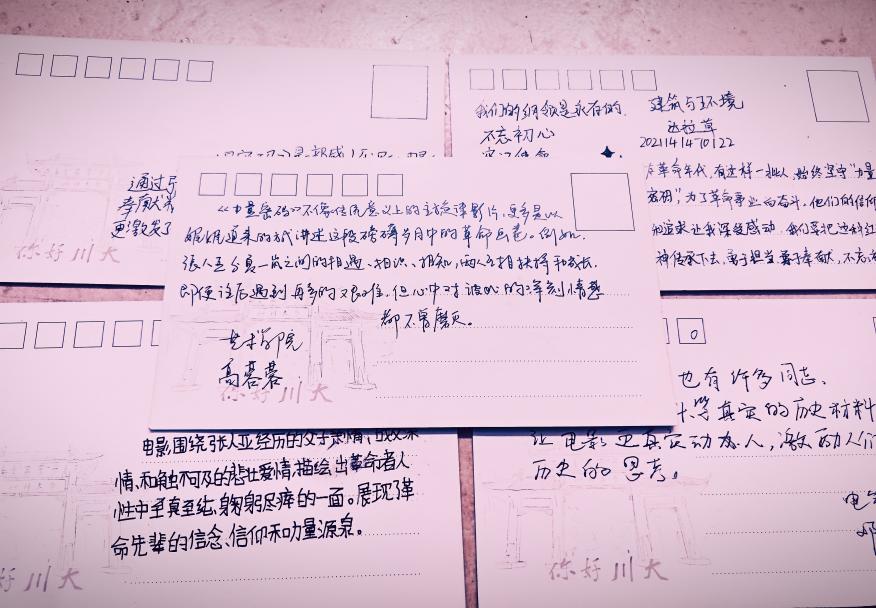 通过
更激发了
你好川大
我们的纲领是永存的.
不忘初心
建筑与环境
2021141410122
革命年代, 有这样一批人, 始终坚守“力量
密码”, 为了革命事业而奋斗. 他们的信仰
和追求让我深受感动. 我们要把这种红
神传承下去, 勇于担当 勇于奉献, 不忘
《力量密码》不像传统意义上的主旋律影片, 更多是以
娓娓道来的方式讲述这段磅礴岁月中的革命画卷。例如,
张人亚与真一岚之间的相遇、相识、相知, 两人互相扶持和成长,
即使误后遇到再多的艰难, 但心中对彼此的深刻情感
都不曾磨灭。
艺术学院
高蓉蓉
你好川大
电影围绕张人亚经历的父子
情、和触不可及的悲壮爱情, 描绘出革命者人
性中至真至纯, 鞠躬尽瘁的一面。展现了革
命先辈的信念、信仰和力量源泉。
好川大
0
也有许多同志、
等真实的历史材料
让电影更真实动人, 激励人们
历史的思考。
你好川大